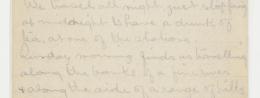 We traveled all night, just stopping
at midnight to have a drink of
tea, at one of the stations.
Sunday morning finds us travelling
along the banks of a fine river
& along the side of a range of hills